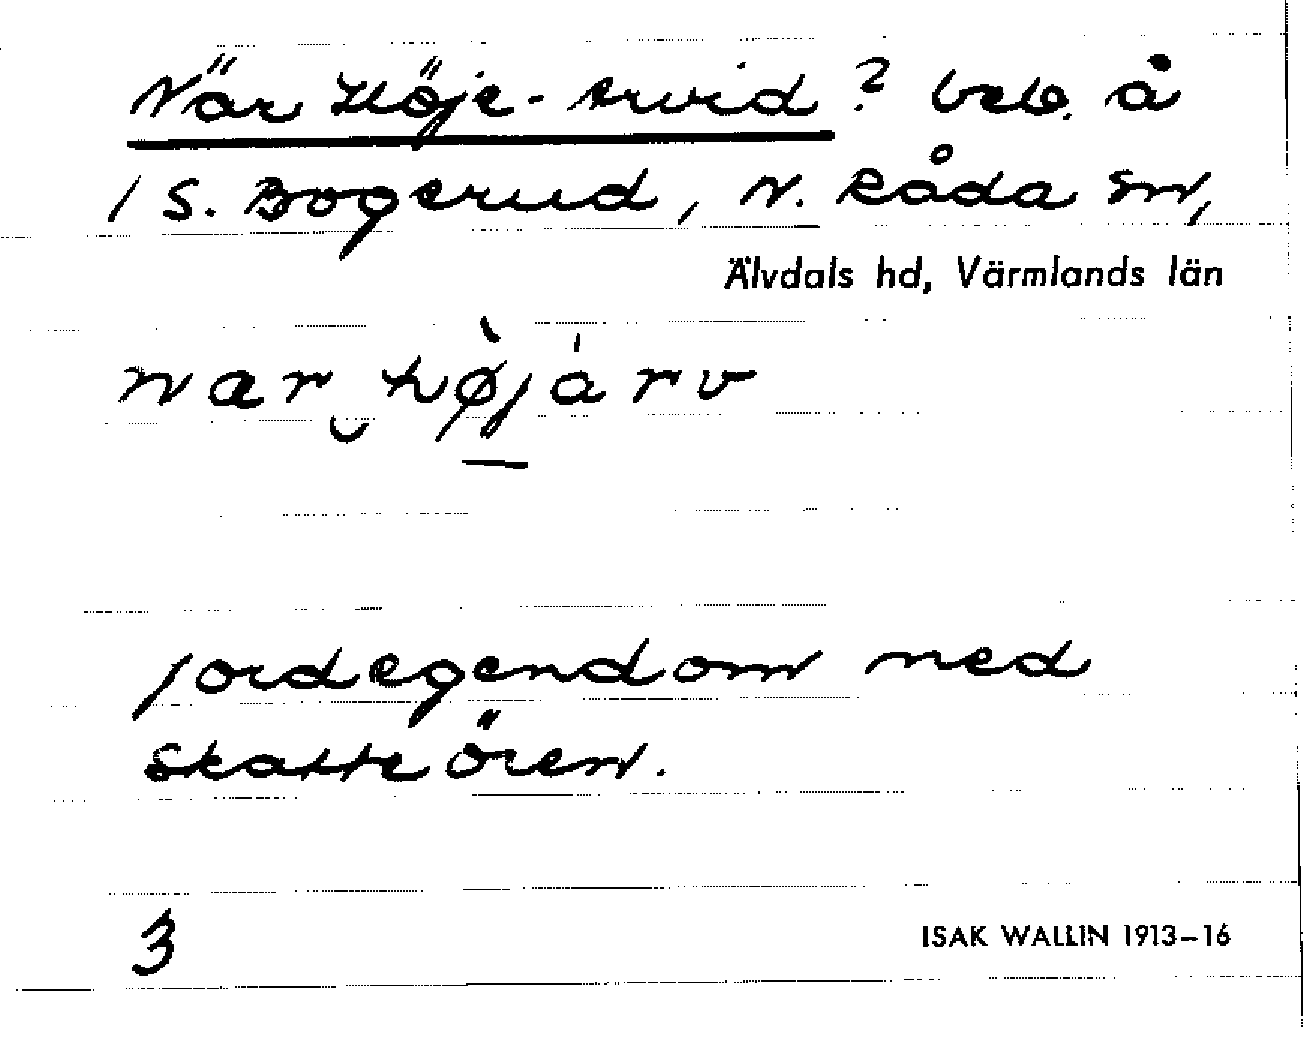 När Höje-Arvid? beb. å
1 S. Bogerud, N. Råda sn,
Älvdals hd, Värmlands län
nar hø̀járv
jordegendom med
skatteören.
3
ISAK WALLIN 1913–16